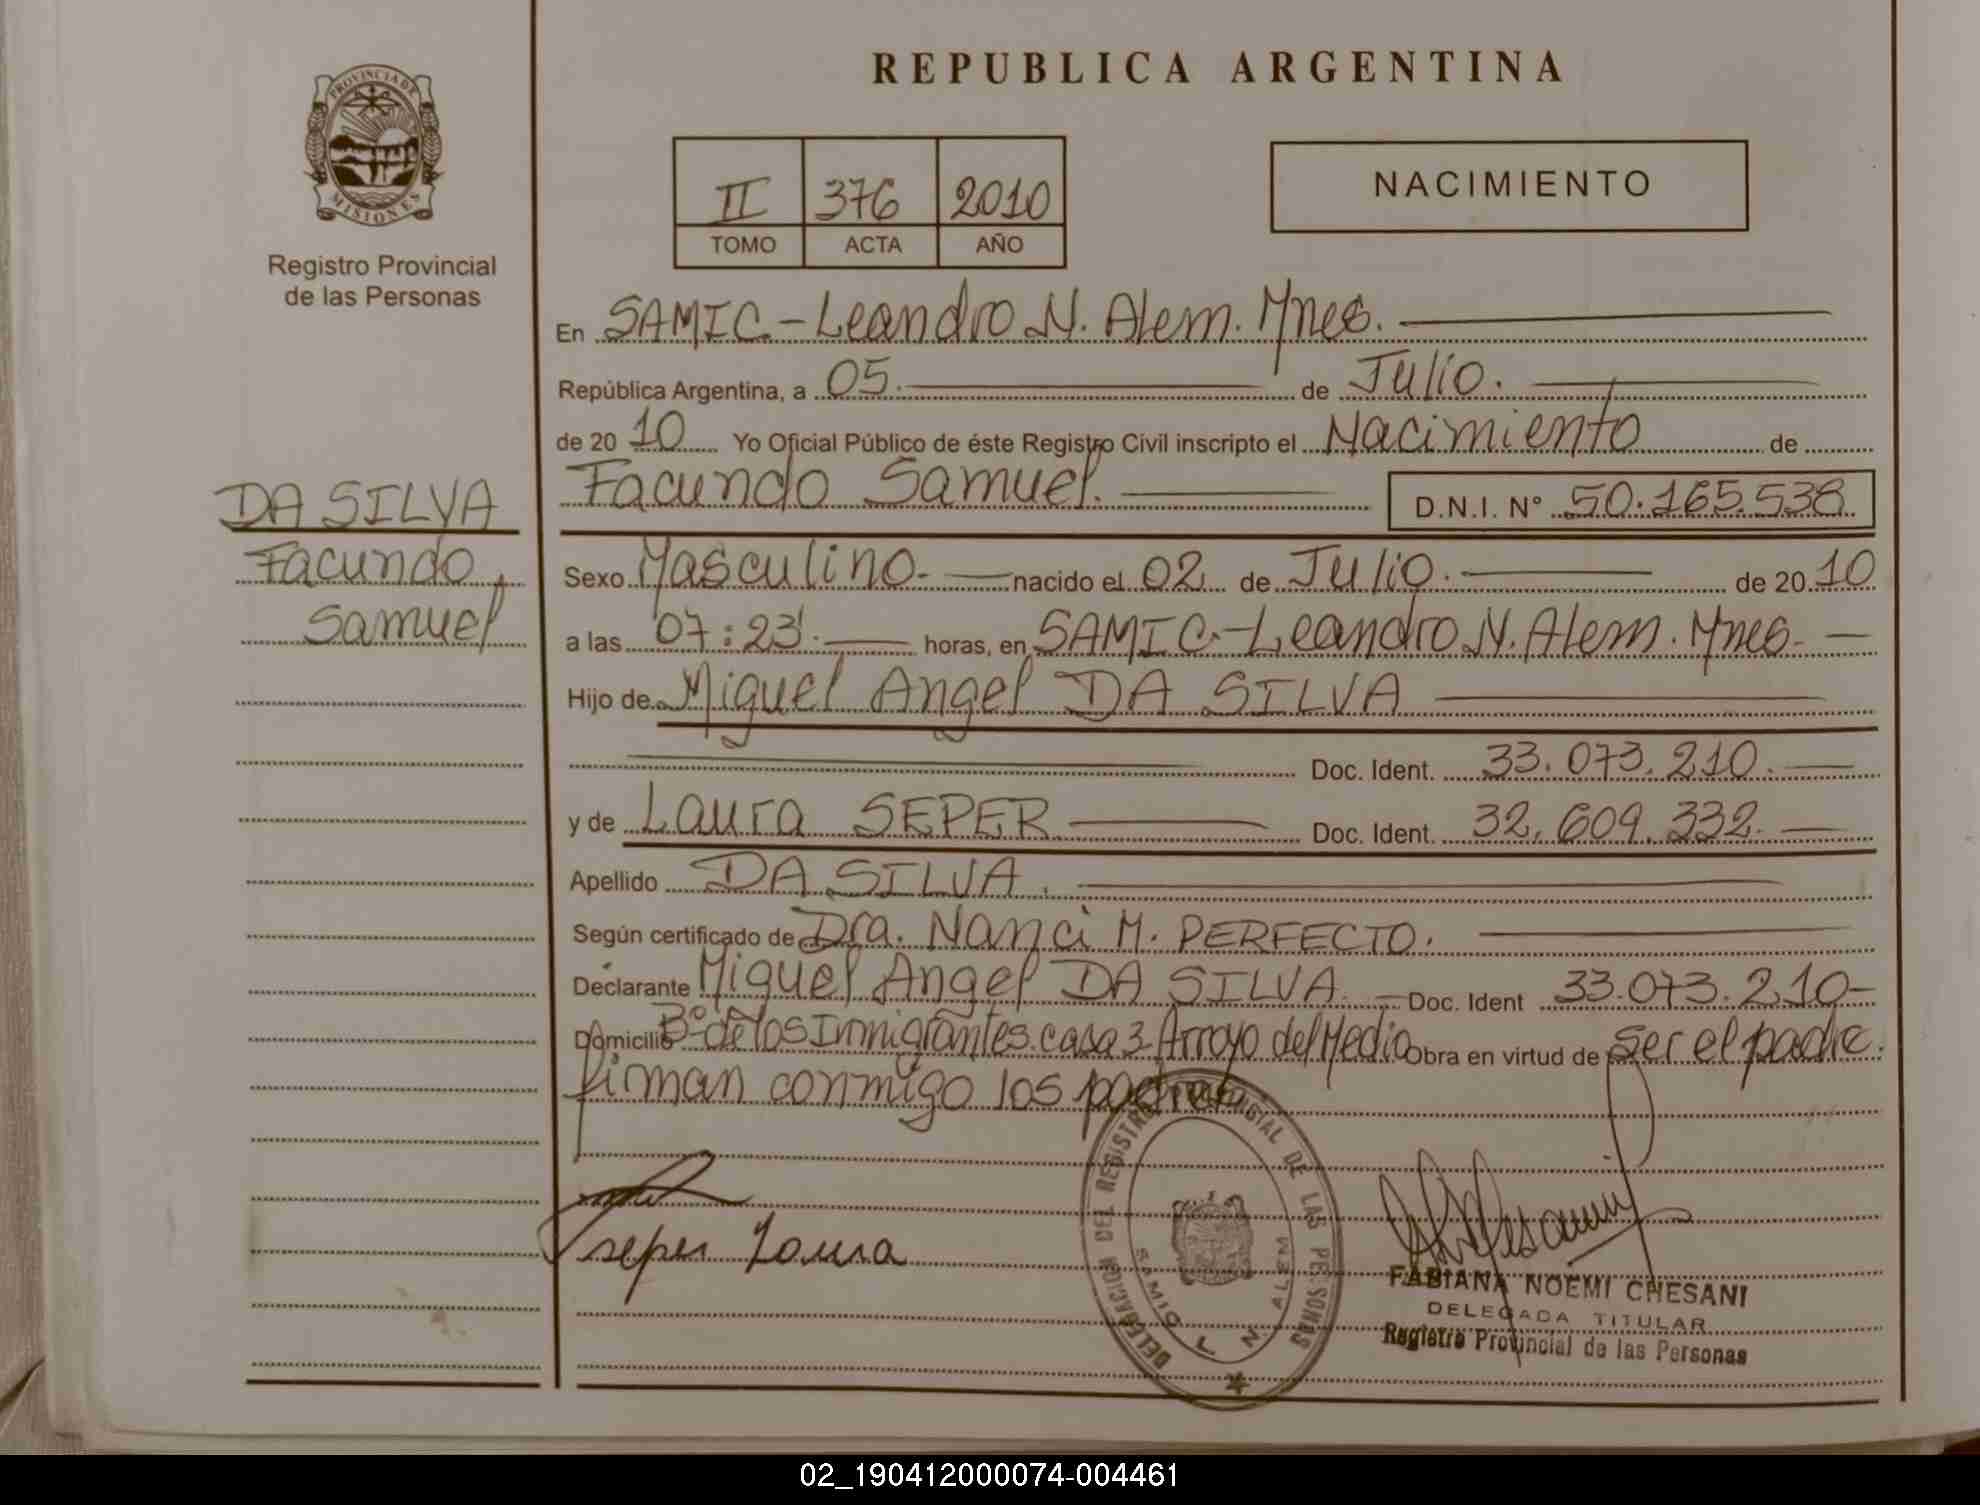 REPUBLICA ARGENTINA
PROVINCIA DE
MISIONES
Registro Provincial
de las Personas
II 376 2010
TOMO ACTA AÑO
NACIMIENTO
En SAMIC-Leandro N. Alem. Mnes.
República Argentina, a 05. de Julio.
de 2010 Yo Oficial Público de éste Registro Civil inscripto el Nacimiento de
Facundo Samuel. D.N.I. N° 50.165.538
DA SILVA
Facundo
Samuel
Sexo Masculino. nacido el 02 de Julio. de 2010
a las 07:23. horas, en SAMIC.-Leandro N. Alem. Mnes.
Hijo de Miguel Angel DA SILVA
Doc. Ident. 33.073.210.
y de Laura SEPER Doc. Ident. 32.609.332.
Apellido DA SILVA.
Según certificado de Dra. Nanci M. PERFECTO.
Declarante Miguel Angel DA SILVA. Doc. Ident 33.073.210-
Domicilio B° de los Inmigrantes casa 3 Arroyo del Medio Obra en virtud de ser el padre.
firman conmigo los padres.
seper Laura
DELEGACION DEL REGISTRO PROVINCIAL DE LAS PERSONAS
SAMIC L. N. ALEM
FABIANA NOEMI CHESANI
DELEGADA TITULAR
Registro Provincial de las Personas
02_190412000074-004461